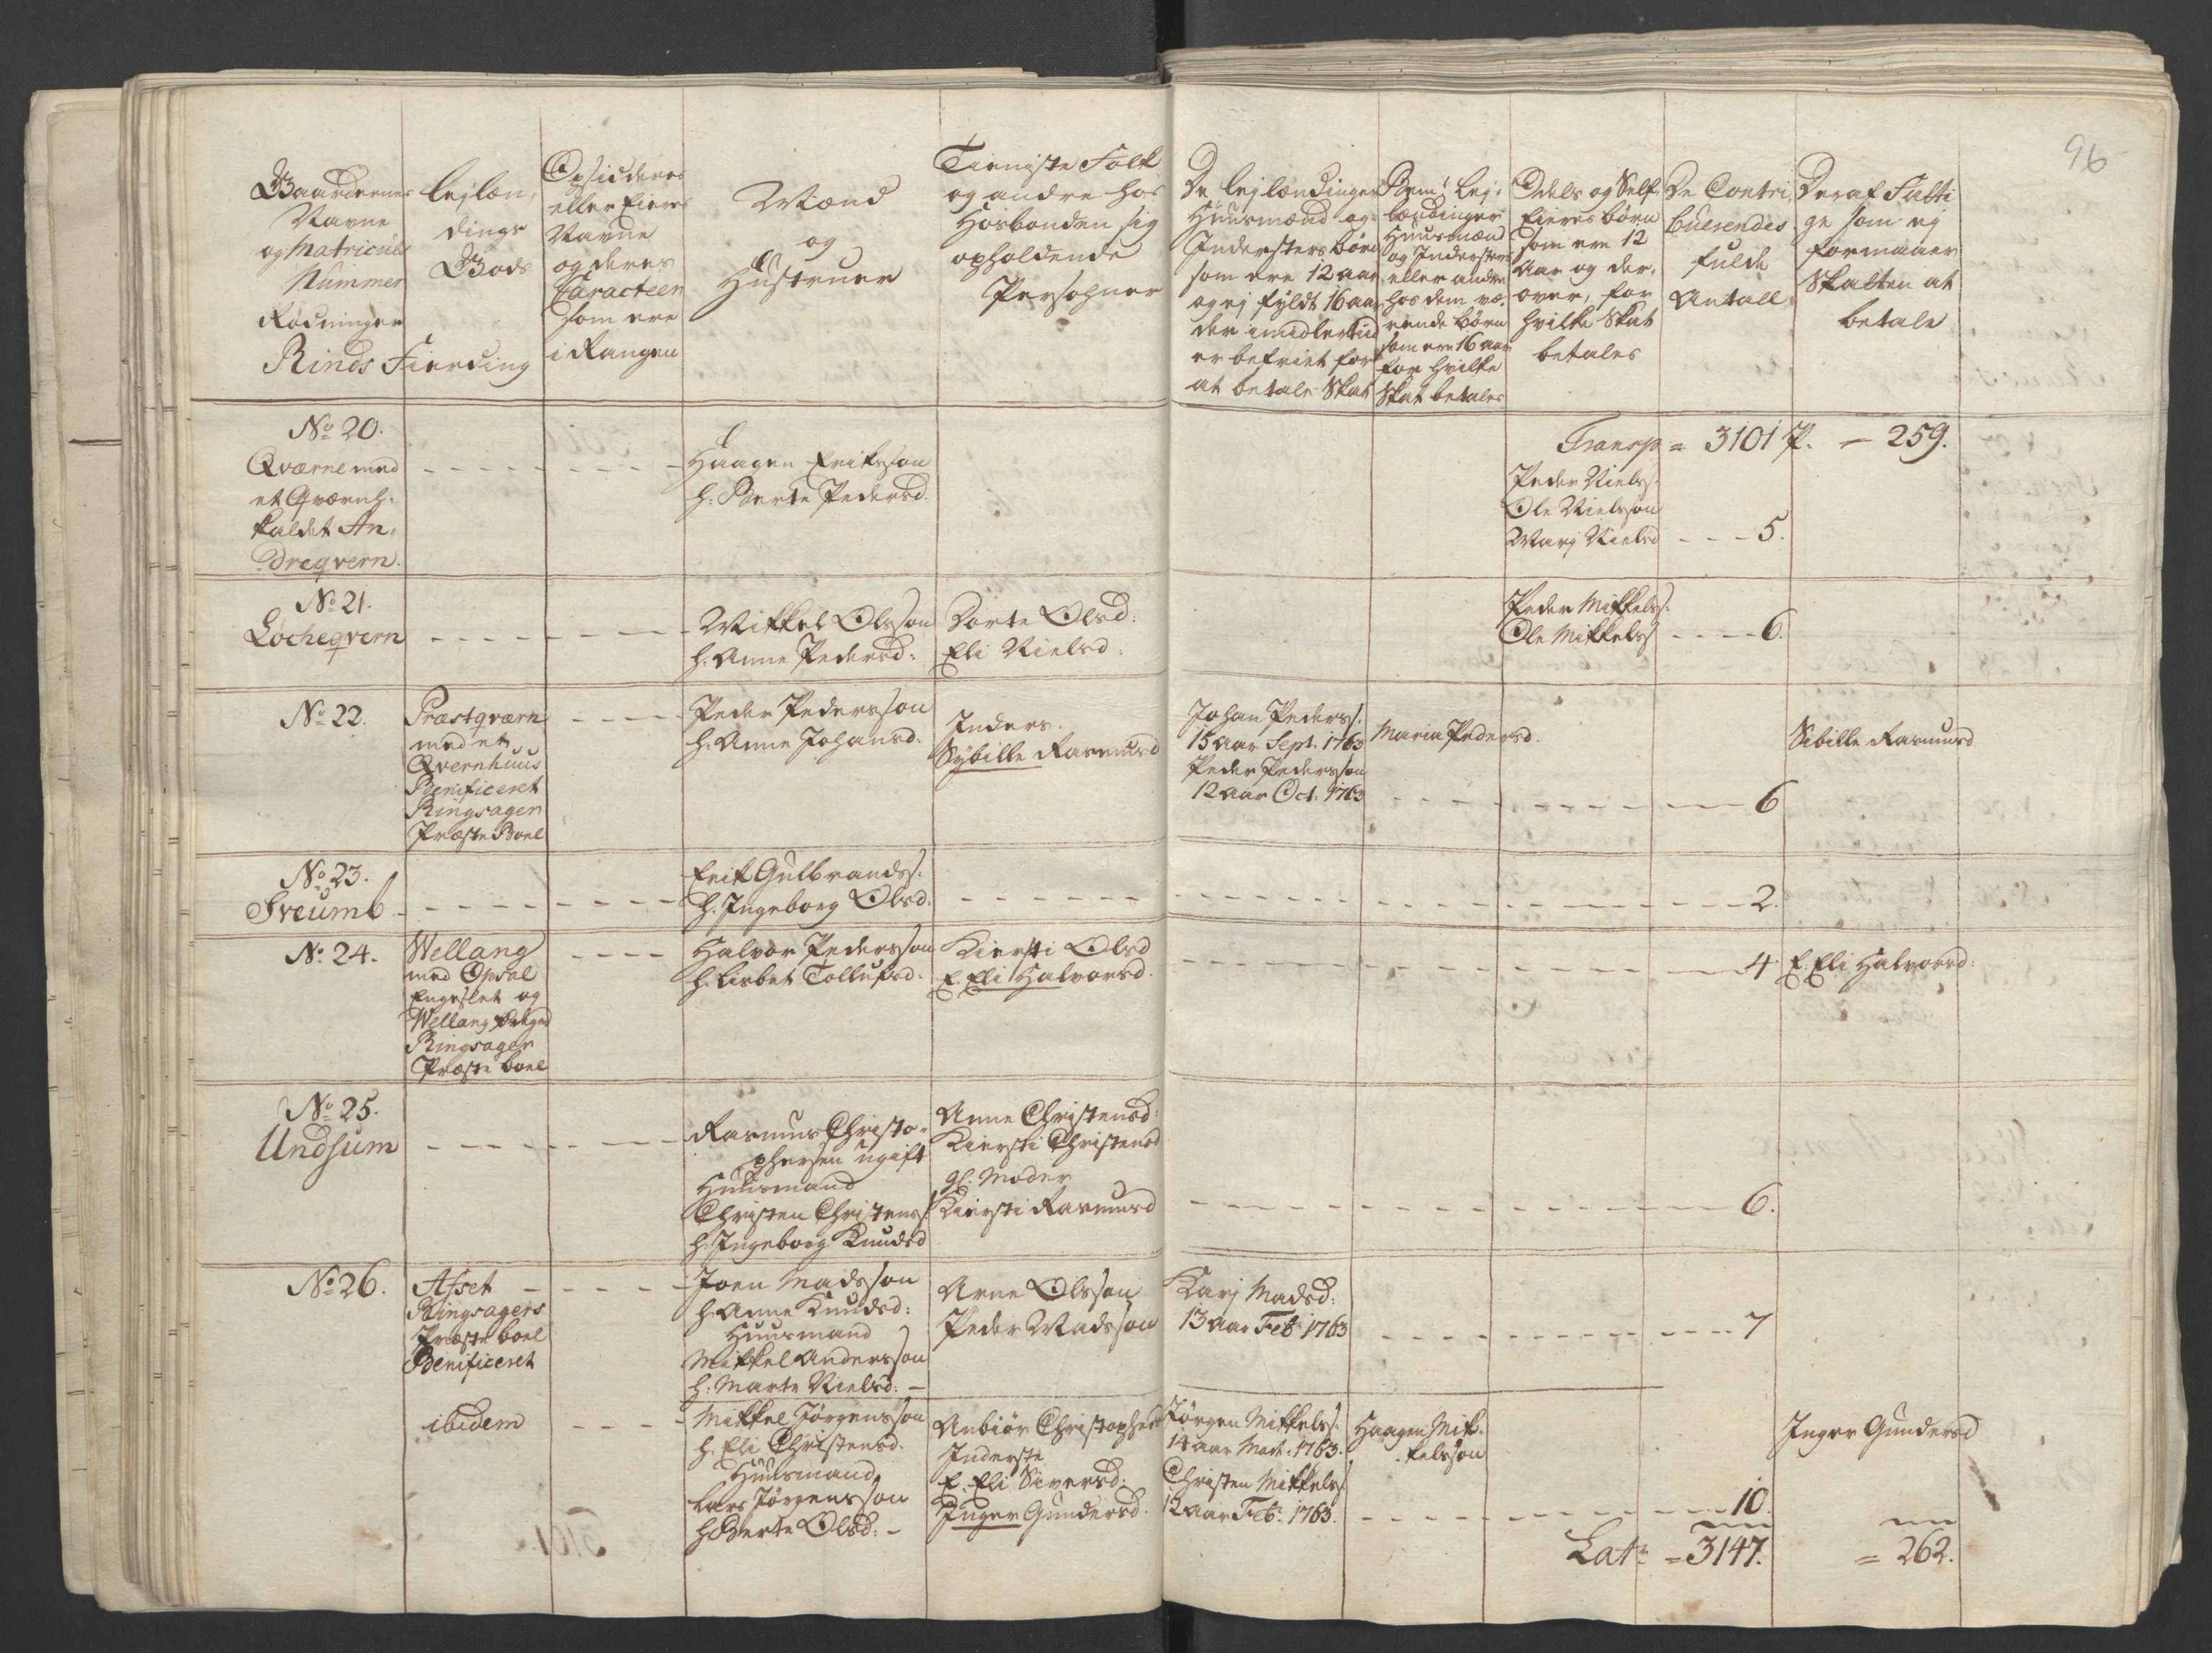 96
Gaardernes
Navne
og Matricul
Nummer
Rodninger
Rinds Fierding
Lejlæn-
dings
Gods
Opsidderes
eller Eieres
Navne
og deres
Caracteer
som ere
i Rangen
Mænd
og
Hustruer
Tieniste Folk
og andre hos
Hosbonden sig
opholdende
Persohner
De lejlændinger
Huusmænd og
Indersters børn
som ere 12 aar
og ej fyldt 16 aar
der imidlertid
er befriet for
at betale Skat
Bem: lej-
lændinger
Huusmænd
og Inderster
eller andre
hos dem væ-
rende børn
som ere 16 aar
for hvilke
Skat betales
Odels og Self
Eieres børn
som ere 12
Aar og der-
over, for
hvilke Skat
betales
De Contri-
buerendes
fulde
Antall
Deraf Fatti
ge som ej
formaaer
Skatten at
betale
Transp = 3101 P. - 259.
No 20.
Qværne med
et Qværnh:
kaldet An-
dreqvern.
Haagen Eriksson
h: Berte Pedersd.
Peder Nielss.
Ole Nielsson
Marj Nielsd - - - 5.
No 21.
Locheqvern
Mikkel Olsson
h: Anne Pedersd:
Dorte Olsd:
Eli Nielsd:
Peder Mikkelss.
Ole Mikkelss - - - - 6.
No 22.
Præstqværn
med et
Qvernhuus
Benificeret
Ringsager
Præste Boel
Peder Pedersson
h: Anne Johansd.
Inders.
Sÿbille Rasmusd
Johan Pederss.
15 Aar Sept. 1763
Peder Pedersson
12 Aar Oct. 1763
Maria Pedersd.
6
Sibille Rasmusd
No 23.
Sveumb
Erik Gulbrandss.
h. Ingeborg Olsd.
2.
No 24.
Wellang
med Opsal
Engeslet og
Wellang
Ringsager
Præste boel
Halvor Pedersson
h. Lisbet Tollufsd.
Kiersti Olsd
E. Eli Halvorsd.
4
E. Eli Halvorsd.
No 25.
Undsum
Rasmus Christo-
phersen ugift
Huusmand
Christen Christenss.
h. Ingeborg Knudsd
Anne Christensd:
Kiersti Christensd
gl. Moder
Kiersti Rasmusd
6.
No 26.
Afset
Ringsagers
Præste boel
Benificeret
Joen Madsson
h. Anne Knudsd:
Huusmand
Mikkel Andersson
h: Marte Nielsd:
Arne Olsson
Peder Madsson
Karj Madsd:
13 Aar Feb. 1763
7
ibidem
Mikkel Jörgensson
h. Eli Christensd.
Huusmand
Lars Jörgensson
h Berte Olsd:
Anbiör Christophersd
Inderste
E. Eli Siversd:
Inger Gundersd.
Jörgen Mikkelss.
14 aar Mart. 1763.
Christen Mikkelss.
12 Aar Feb. 1763.
Haagen Mik-
kelsson
10.
Inger Gundersd
Lat: = 3147.
= 262.